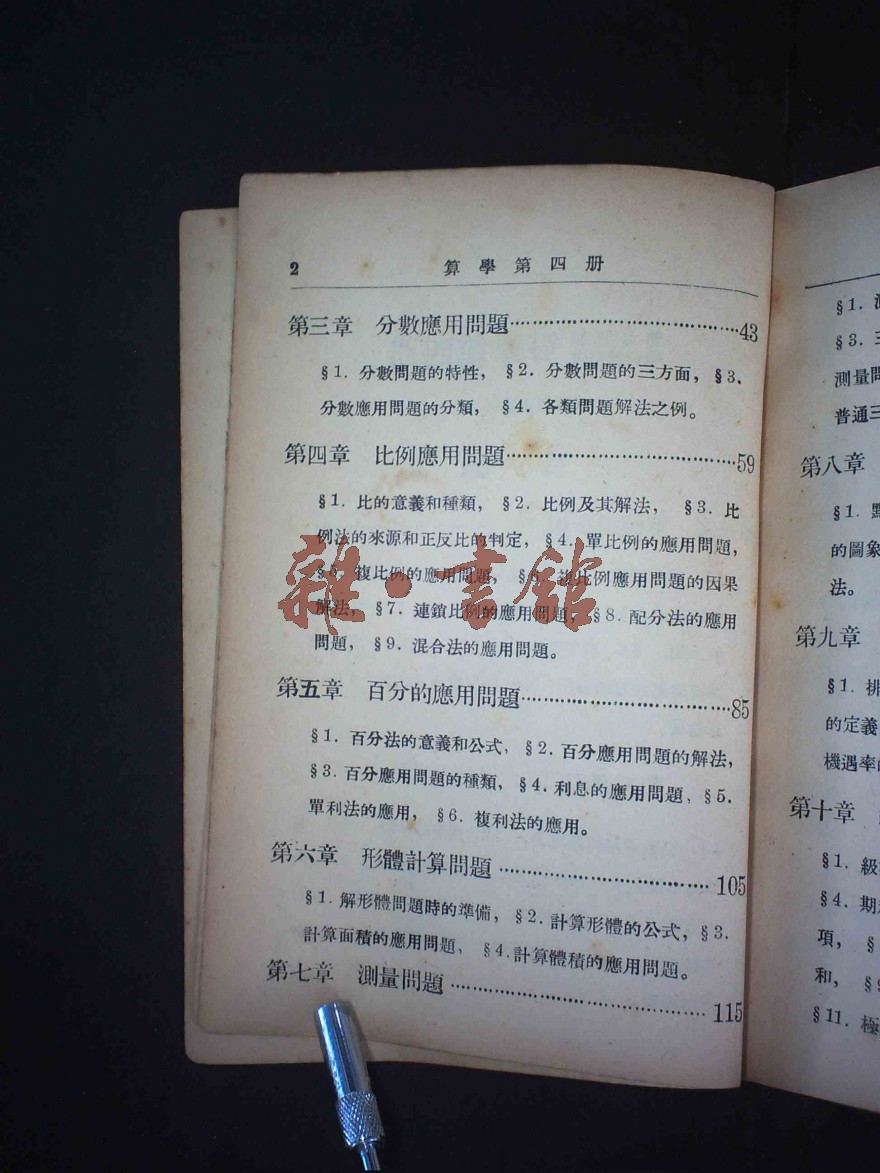 2 算學第四册
第三章 分數應用問題……43
§1. 分數問題的特性， §2. 分數問題的三方面， §3.
分數應用問題的分類， §4. 各類問題解法之例。
第四章 比例應用問題……59
§1. 比的意義和種類， §2. 比例及其解法， §3. 比
例法的來源和正反比的判定， §4. 單比例的應用問題，
§5. 複比例的應用問題， §6. 複比例應用問題的因果
解法， §7. 連鎖比例的應用問題， §8. 配分法的應用
問題， §9. 混合法的應用問題。
第五章 百分的應用問題……85
§1. 百分法的意義和公式， §2. 百分應用問題的解法，
§3. 百分應用問題的種類， §4. 利息的應用問題， §5.
單利法的應用， §6. 複利法的應用。
第六章 形體計算問題……105
§1. 解形體問題時的準備， §2. 計算形體的公式， §3.
計算面積的應用問題， §4. 計算體積的應用問題。
第七章 測量問題……115
雜·書館
§1.
§3.
測量問
普通三
第八章
§1.
的圖象
法。
第九章
§1. 排
的定義
機遇率
第十章
§1. 級
§4. 期
項， §
和， §
§11. 極